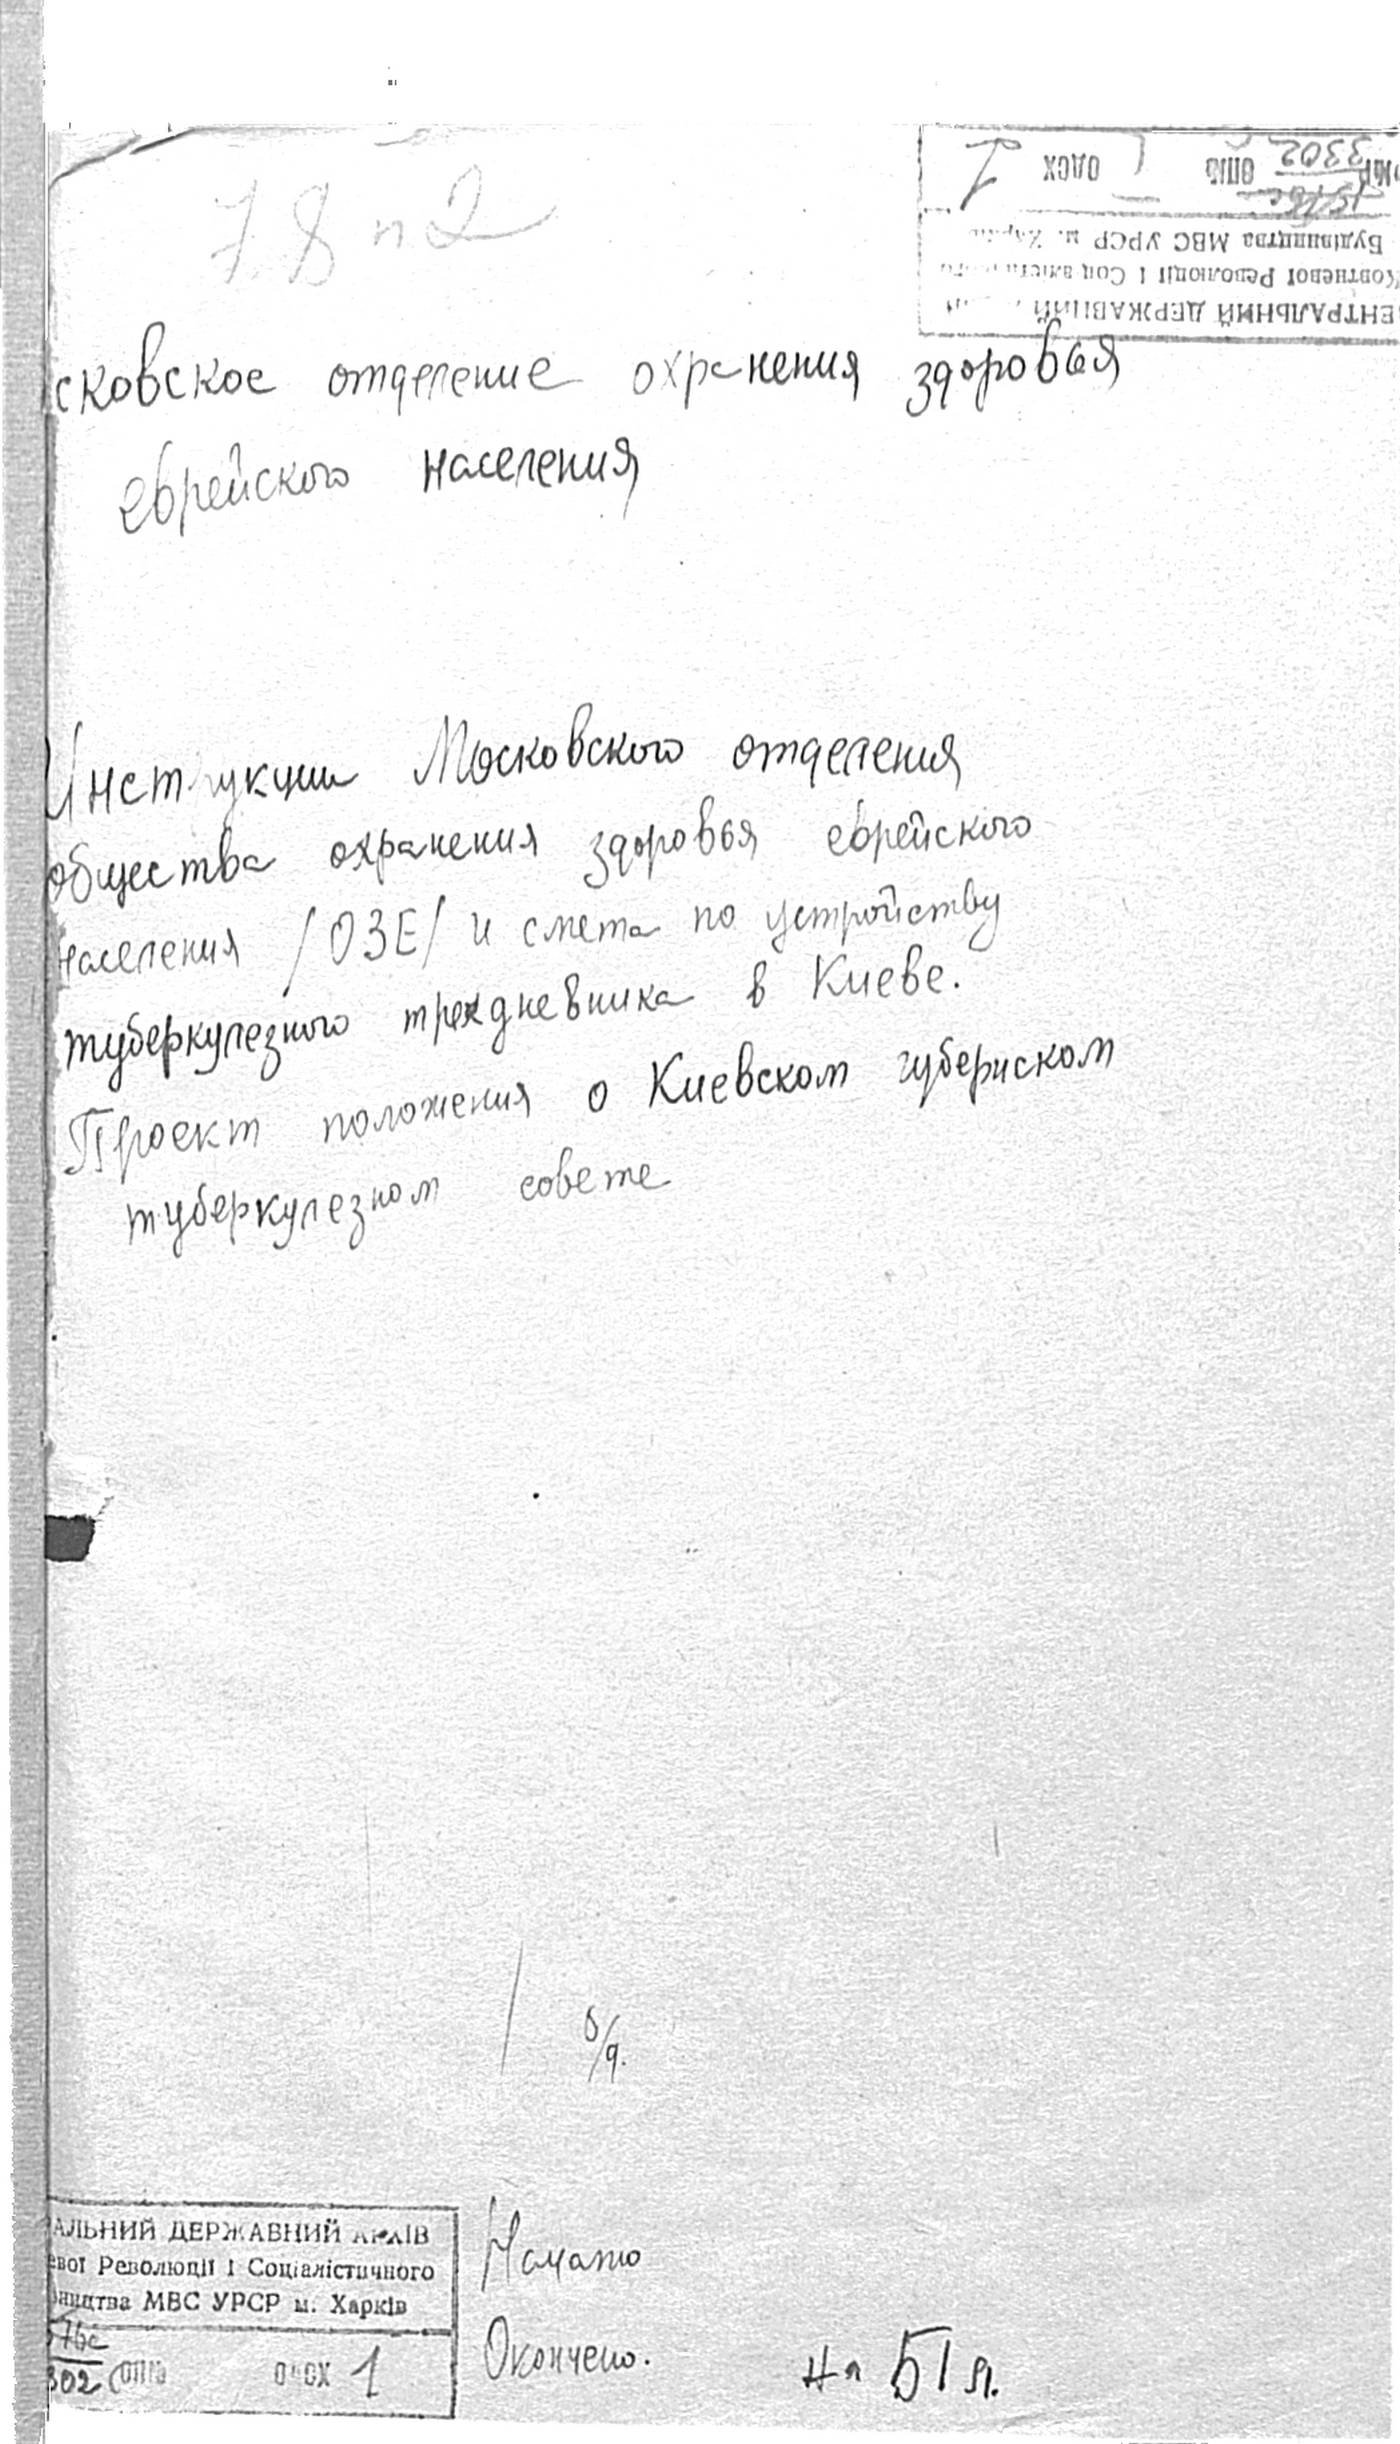 7.8 п 2
ЕНТРАЛЬНИЙ ДЕРЖАВНИЙ
Жовтневої Революції і Соціалістичного
Будівництва МВС УРСР м. Харків
3302 ОПІС ОДСХ 1
сковское отделение охранения здоровья
еврейского населения
Инструкции Московского отделения
общества охранения здоровья еврейского
населения /ОЗЕ/ и смета по устройству
туберкулезного трехдневника в Киеве.
Проект положения о Киевском губернском
туберкулезном совете
б/д.
АЛЬНИЙ ДЕРЖАВНИЙ АРХІВ
евої Революції і Соціалістичного
вництва МВС УРСР м. Харків
76с
302 ОПІС ОДСХ 1
Начато
Окончено.
на 51 л.